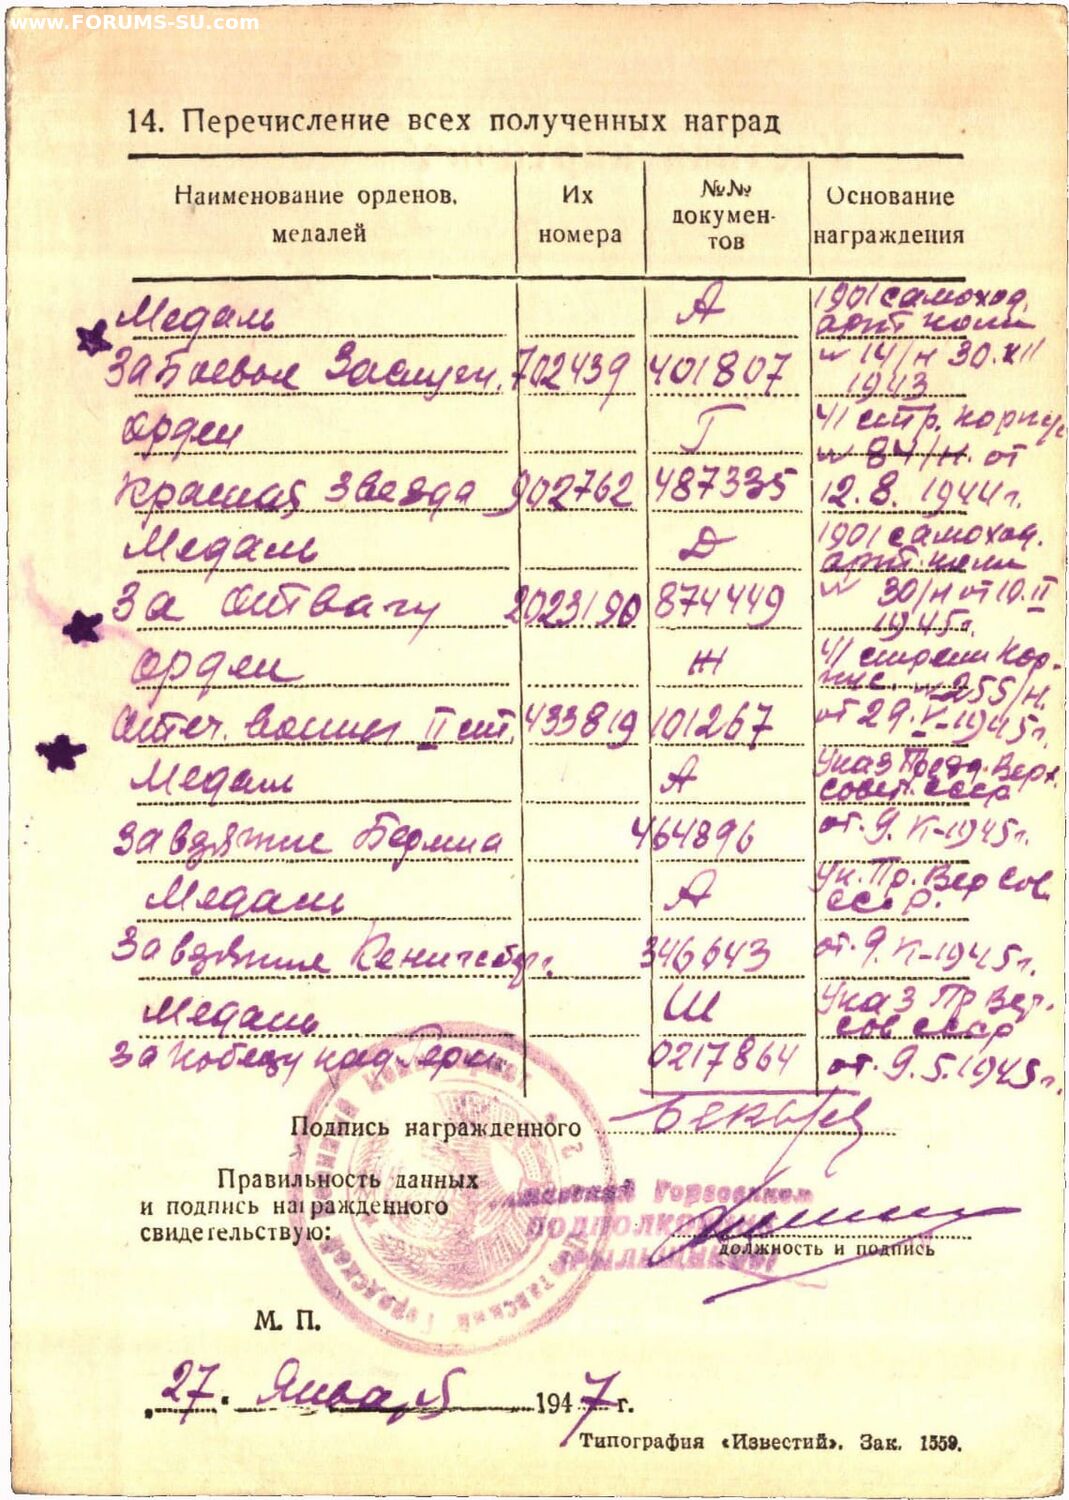 www.FORUMS-SU.com
14. Перечисление всех полученных наград
Наименование орденов, медалей
Их номера
№№ документов
Основание награждения
Медаль А 1901 самоход. арт полк
За Боевые Заслуги. 702439 401807 № 14/н 30.XII 1943
Орден Г 41 стр. корпус
Красная Звезда 902762 487335 № 84/н. от 12.8.1944г.
Медаль Д 1901 самоход. арт. полк
За Отвагу 2023190 874449 № 30/н от 10.II 1945г.
Орден Ж 41 стрелк кор-
Отеч. Войны II ст. 433819 101267 № 255/н. от 29.V-1945г.
Медаль А Указ През. Верх. Совет. СССР
За взятие Берлина 464896 от 9.VI-1945г.
Медаль А Ук. Пр. Вер Сов. СССР.
За взятие Кенигсберг. 346643 от 9.VI-1945г.
Медаль Ш Указ Пр Вер. Сов СССР
За победу над Герм 0217864 от 9.5.1945г.
Подпись награжденного
Правильность данных
и подпись награжденного
свидетельствую:
Горвоенком
ПОДПОЛКОВНИК
должность и подпись
М. П.
„27“ Января 1947 г.
Типография «Известий». Зак. 1559.